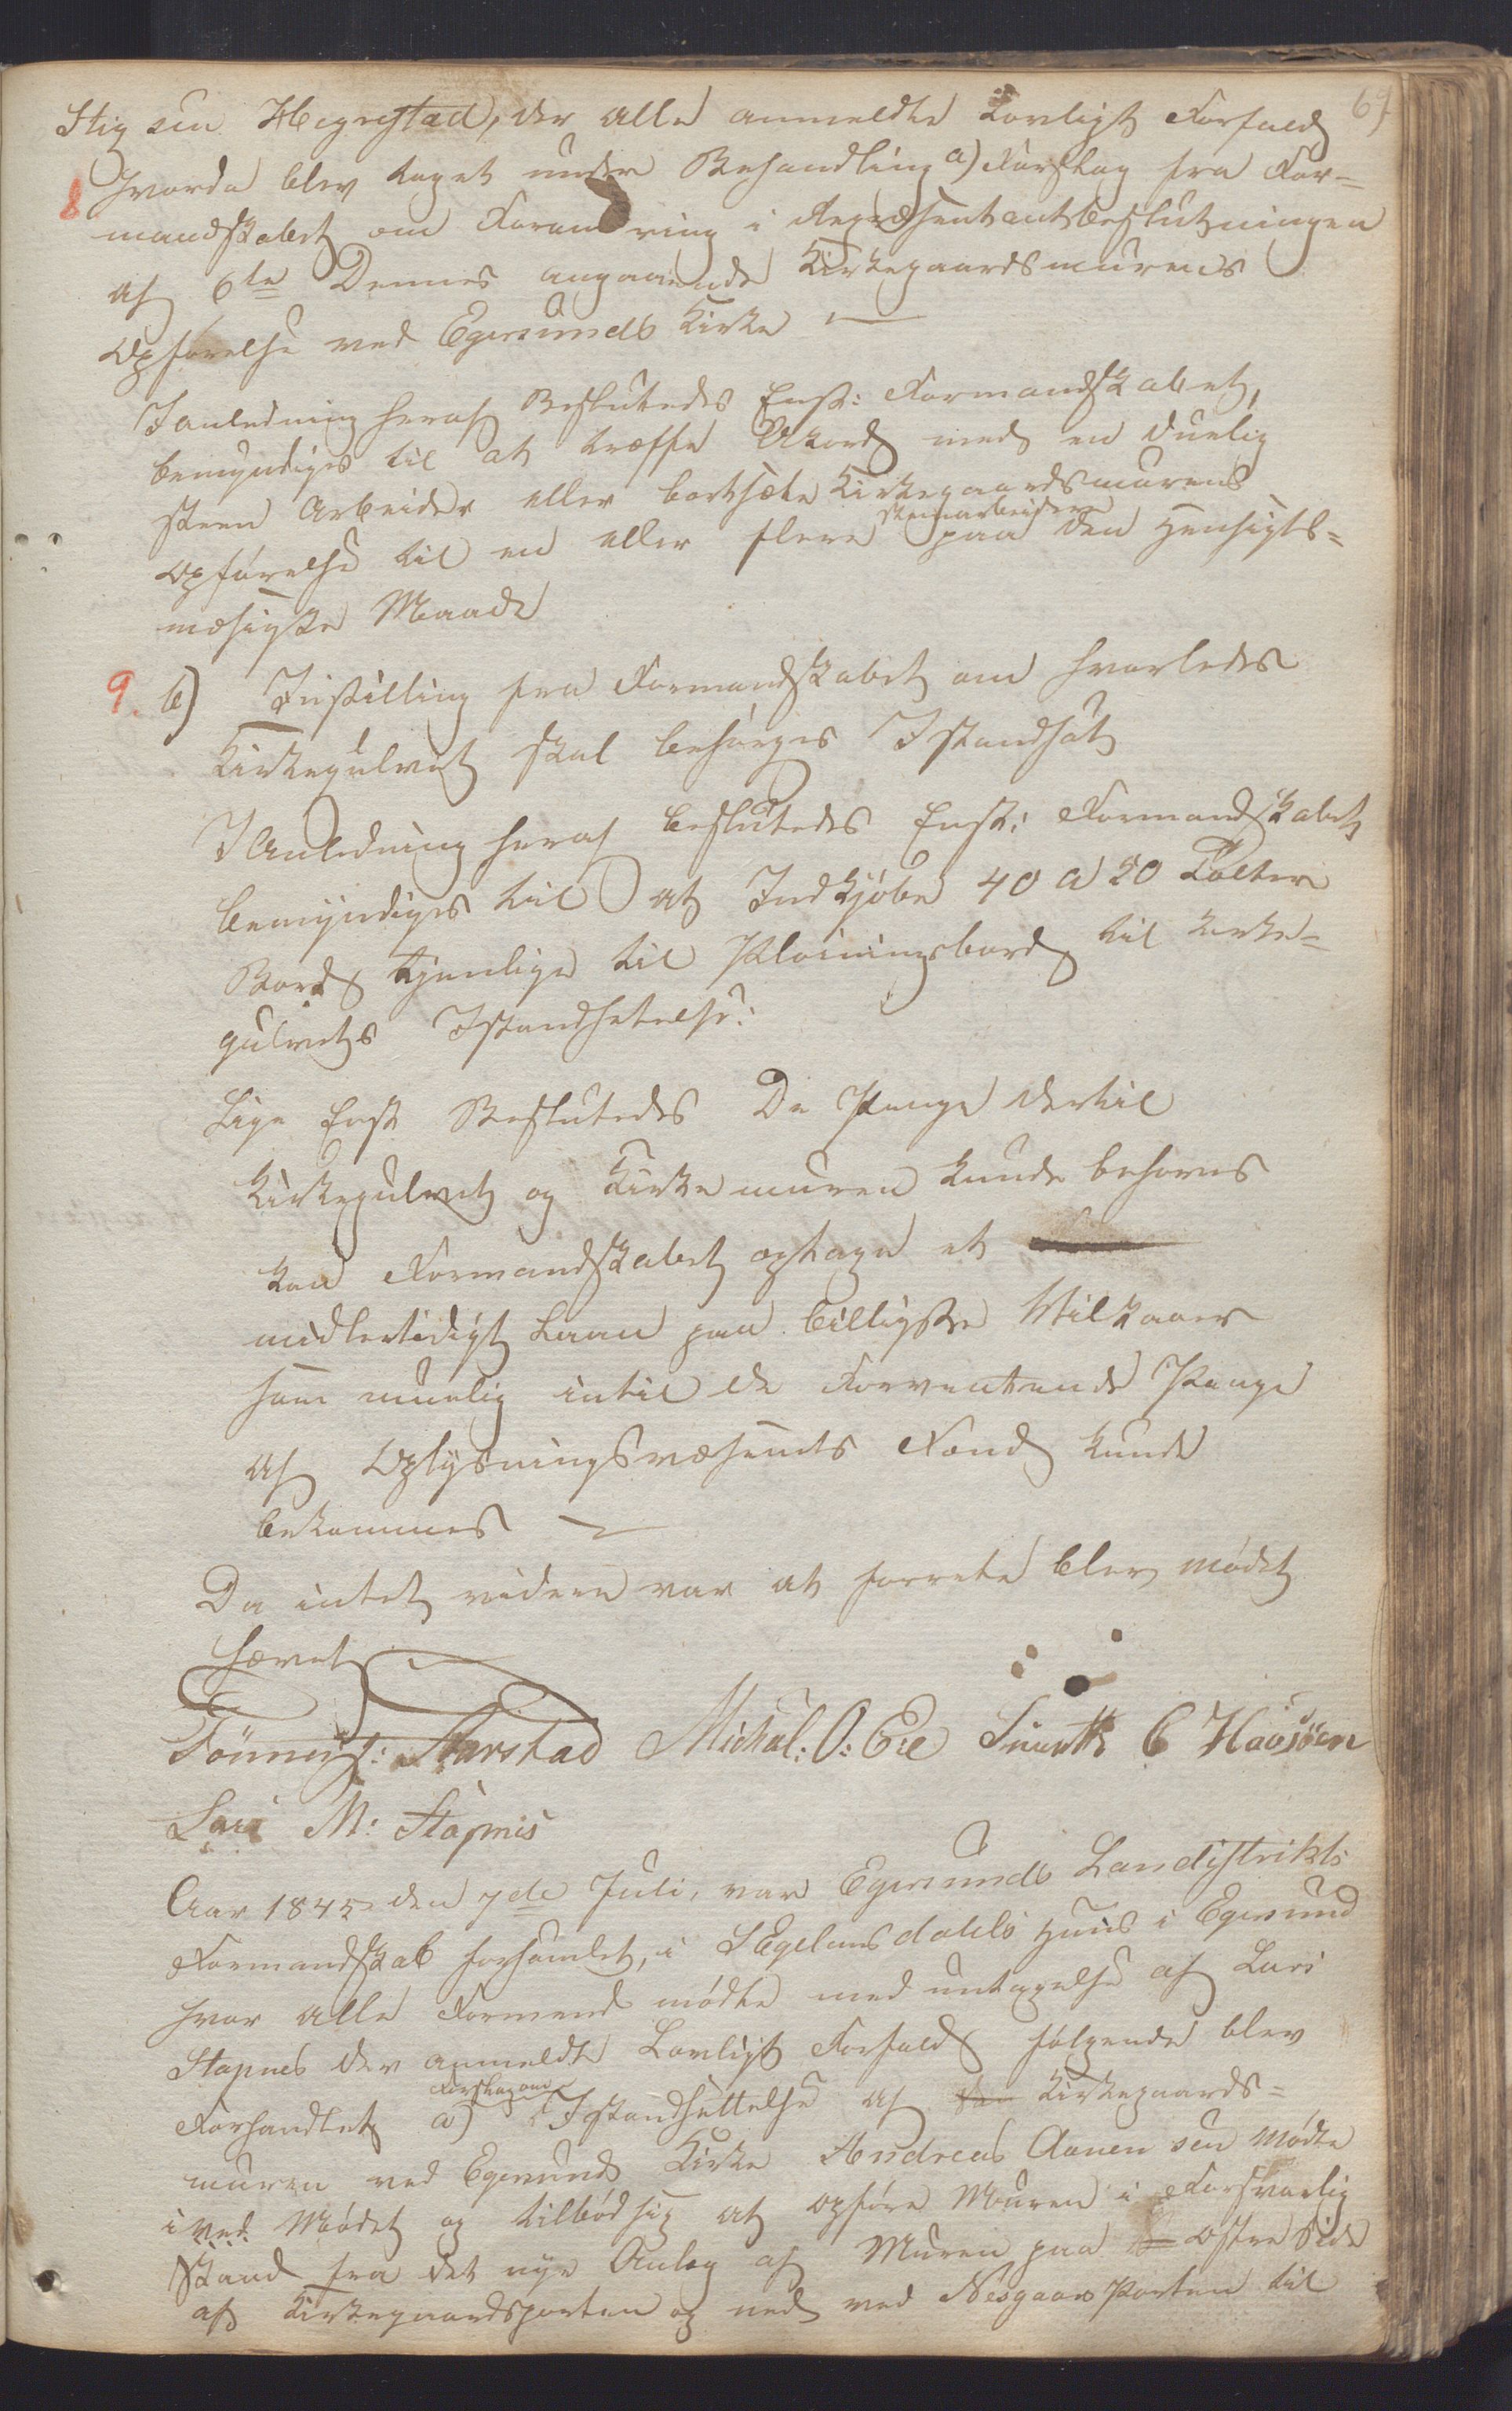 69
Stig sen Hegrestad, der alle anmeldte Lovligt Forfald
8 Hvorda blev taget under Behandling a) Forslag fra For-
mandskabet om Forandring i Repræsentantbeslutningen
af 6te Dennes angaaende Kirkegaardsmurens
Opførelse ved Egersunds Kirke —
I anledning heraf Beslutedes Enst: Formandskabet,
bemyndiges til at træffe Akord med en duelig
steen Arbeider eller bortsætte Kirkegaardsmurens
steenarbeidere
Opførelse til en eller flere paa den Hensigts-
mæsigste Maade
9. b) Instilling fra Formandskabet om hvorledes
Kirkegulvet skal besørges Istandsat
I Anledning heraf beslutedes Enst: Formandskabet
bemyndiges til at Indkjøbe 40 a 50 Tolter
Bord tjenlige til Pløiningsbord til Kirke-
gulvets Istandsetelse:
Lige Enst Beslutedes De Penge dertil
Kirkegulvet og Kirkemuren kunde behøves
kan Formandskabet optage et
midlertidigt Laan paa billigste Vilkaar
som muelig intil de Forventende Penge
af Oplysningsvæsenets Fond kunde
bekommes —
Da intet videre var at forrette blev mødet
hævet
Tönnes: Aarstad Michal: O: Eie Svend C Havsöen
Lars M: Stapnes
Aar 1845 den 7de Juli, var Egersunds Landistrikts
Formandskab forsamlet, i S Egelunsdahls Huus i Egersund
hvor alle Formend mødte med untagelse af Lars
Stapnes der anmeldte Lovligt Forfald følgende blev
Forslag om
Forhandlet a) Istandsettelse af den Kirkegaards-
muren ved Egersunds Kirke Andreas Aanensen mødte
i ved Mødet og tilbød sig at opføre Muren i Forsvarlig
Stand fra det nye Anlæg af Muren paa Østre Side
af Kirkegaardsporten og ned ved Nesgaars Porten til